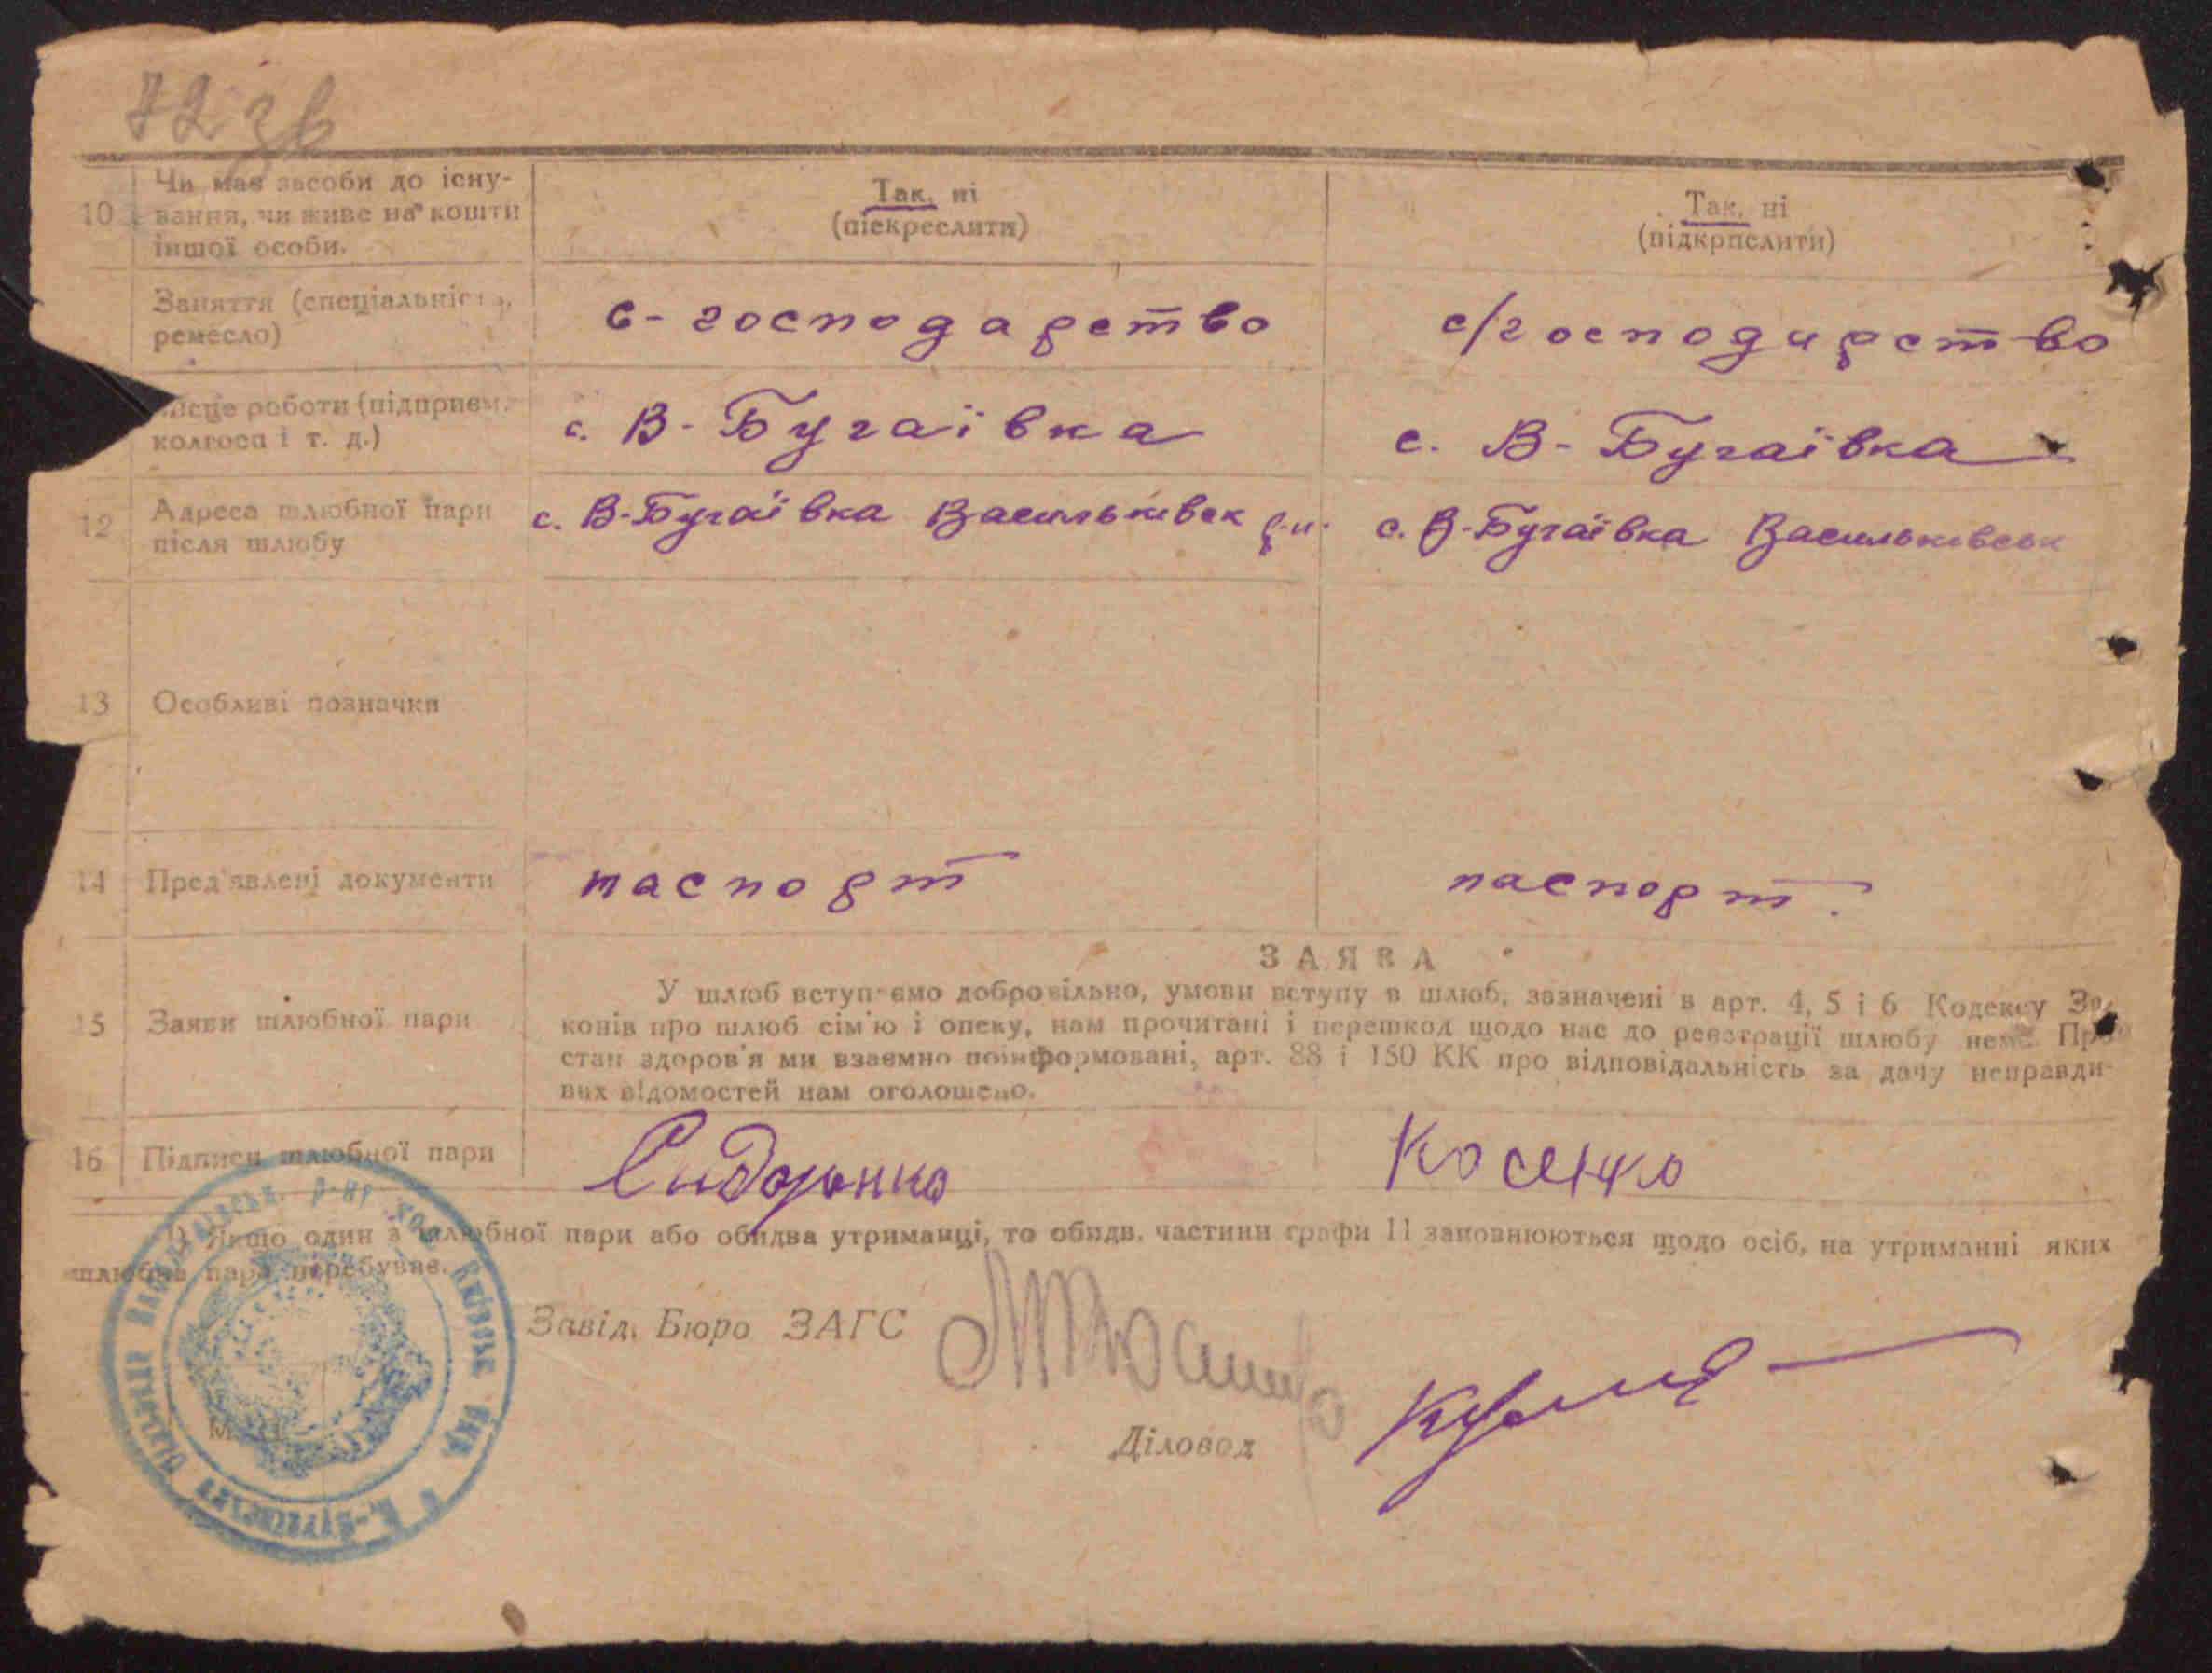 72 зв
10 Чи має засоби до існу-
вання, чи живе на кошти
іншої особи.
Так, ні
(піскреслити)
Так, ні
(підкрпслити)
Заняття (спеціальність,
ремесло)
с-господарство
с/господарство
місце роботи (підприєм.
колгосп і т. д.)
с. В-Бугаївка
с. В-Бугаївка
12 Адреса шлюбної пари
після шлюбу
с. В-Бугаївка Васильківск р-н.
с. В-Бугаївка Васильківськ
13 Особливі позначки
14 Пред'явлені документи
паспорт
паспорт.
ЗАЯВА
15 Заяви шлюбної пари
У шлюб вступаємо добровільно, умови вступу в шлюб, зазначені в арт. 4, 5 і 6 Кодексу За-
конів про шлюб сім'ю і опеку, нам прочитані і перешкод щодо нас до реєстрації шлюбу нема. Про
стан здоров'я ми взаємно поінформовані, арт. 88 і 150 КК про відповідальність за дачу неправди-
вих відомостей нам оголошено.
16 Підписи шлюбної пари
Сидоренко
Косенко
1) Якщо один з шлюбної пари або обидва утриманці, то обидв. частини графи 11 заповнюються щодо осіб, на утриманні яких
шлюбна пара перебуває.
Завід. Бюро ЗАГС
Діловод
М. П.